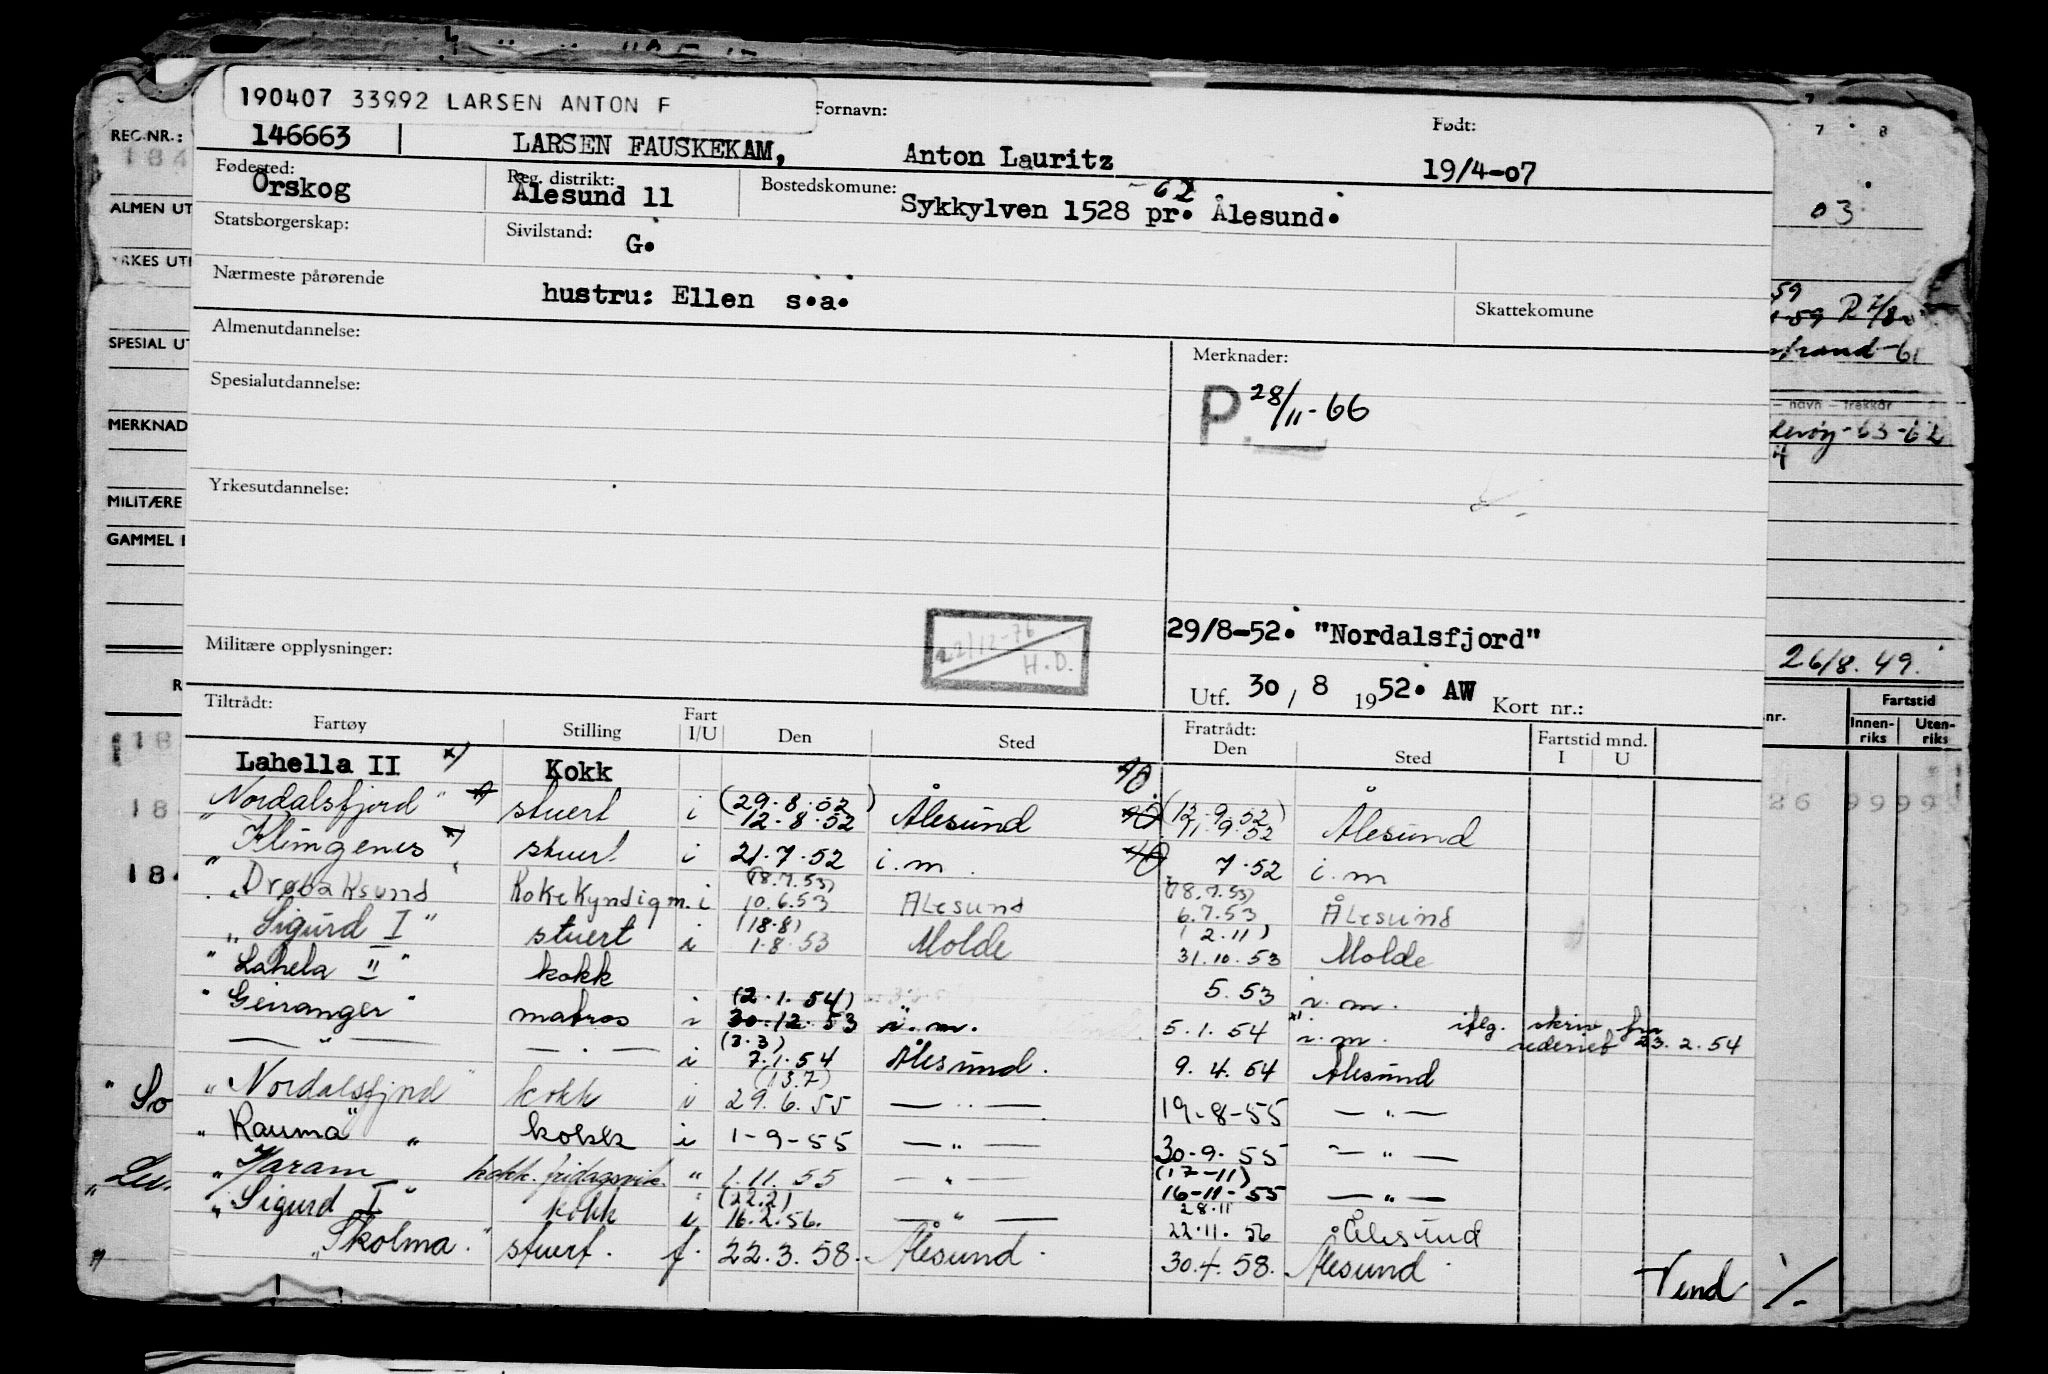 190407 33992 LARSEN ANTON F
Fornavn:
Født:
REG.NR.:
146663
LARSEN FAUSKEKAM,
Anton Lauritz
19/4-07
Fødested:
Ørskog
Reg. distrikt:
Ålesund 11
Bostedskomune:
-62
Sykkylven 1528 pr. Ålesund.
Statsborgerskap:
Sivilstand:
G.
Nærmeste pårørende
hustru: Ellen s.a.
Skattekomune
Almenutdannelse:
Merknader:
Spesialutdannelse:
P. 28/11-66
Yrkesutdannelse:
22/12-76
H.D.
29/8-52. "Nordalsfjord"
Militære opplysninger:
Utf. 30 / 8 1952. AW Kort nr.:
Tiltrådt:
Fartøy Stilling Fart I/U Den Sted Fratrådt: Den Sted Fartstid mnd. I U
Lahella II x) Kokk
"Nordalsfjord" stuert i (29.8.52) 12.8.52 Ålesund (12.9.52) 11.9.52 Ålesund
"Klingenes" x) stuert i 21.7.52 i.m. 7.52 i.m
"Drøbaksund" Kokekyndig m. i (18.7.53) 10.6.53 ALesund (18.7.53) 6.7.53 ÅLesund
"Sigurd I" stuert i (18.8) 1.8.53 Molde (2.11) 31.10.53 Molde
"Lahela II" kokk 5.53 i.m.
"Geiranger" matros i (2.1.54) 30.12.53 i.m. 5.1.54 i.m. iflg. skriv fra rederiet 23.2.54
— " — — . — i (3.3) 7.1.54 Ålesund. 9.4.54 Ålesund
"Nordalsfjord" kokk i (13.7) 29.6.55 — " — 19-8-55 — " —
"Rauma" kokk i 1-9-55 — " — 30-9-55 — " —
"Haram" kokk " 1.11.55 — " — (17-11) 16-11-55 — " —
"Sigurd I" kokk i (22.2) 16.2.56. — " — 28.11 22.11.56 Ålesund
"Skolma." stuert. f. 22.3.58. Ålesund. 30.4.58. Ålesund.
Vend ./.
ALMEN UT
YRKES UT
SPESIAL UT
MERKNAD
MILITÆRE
GAMMEL
184
18
7 . 8
03
59
- navn - trekkår
-63-62
26/8.49.
nr.
Fartstid
Innen-
riks
Uten-
riks
26 9999